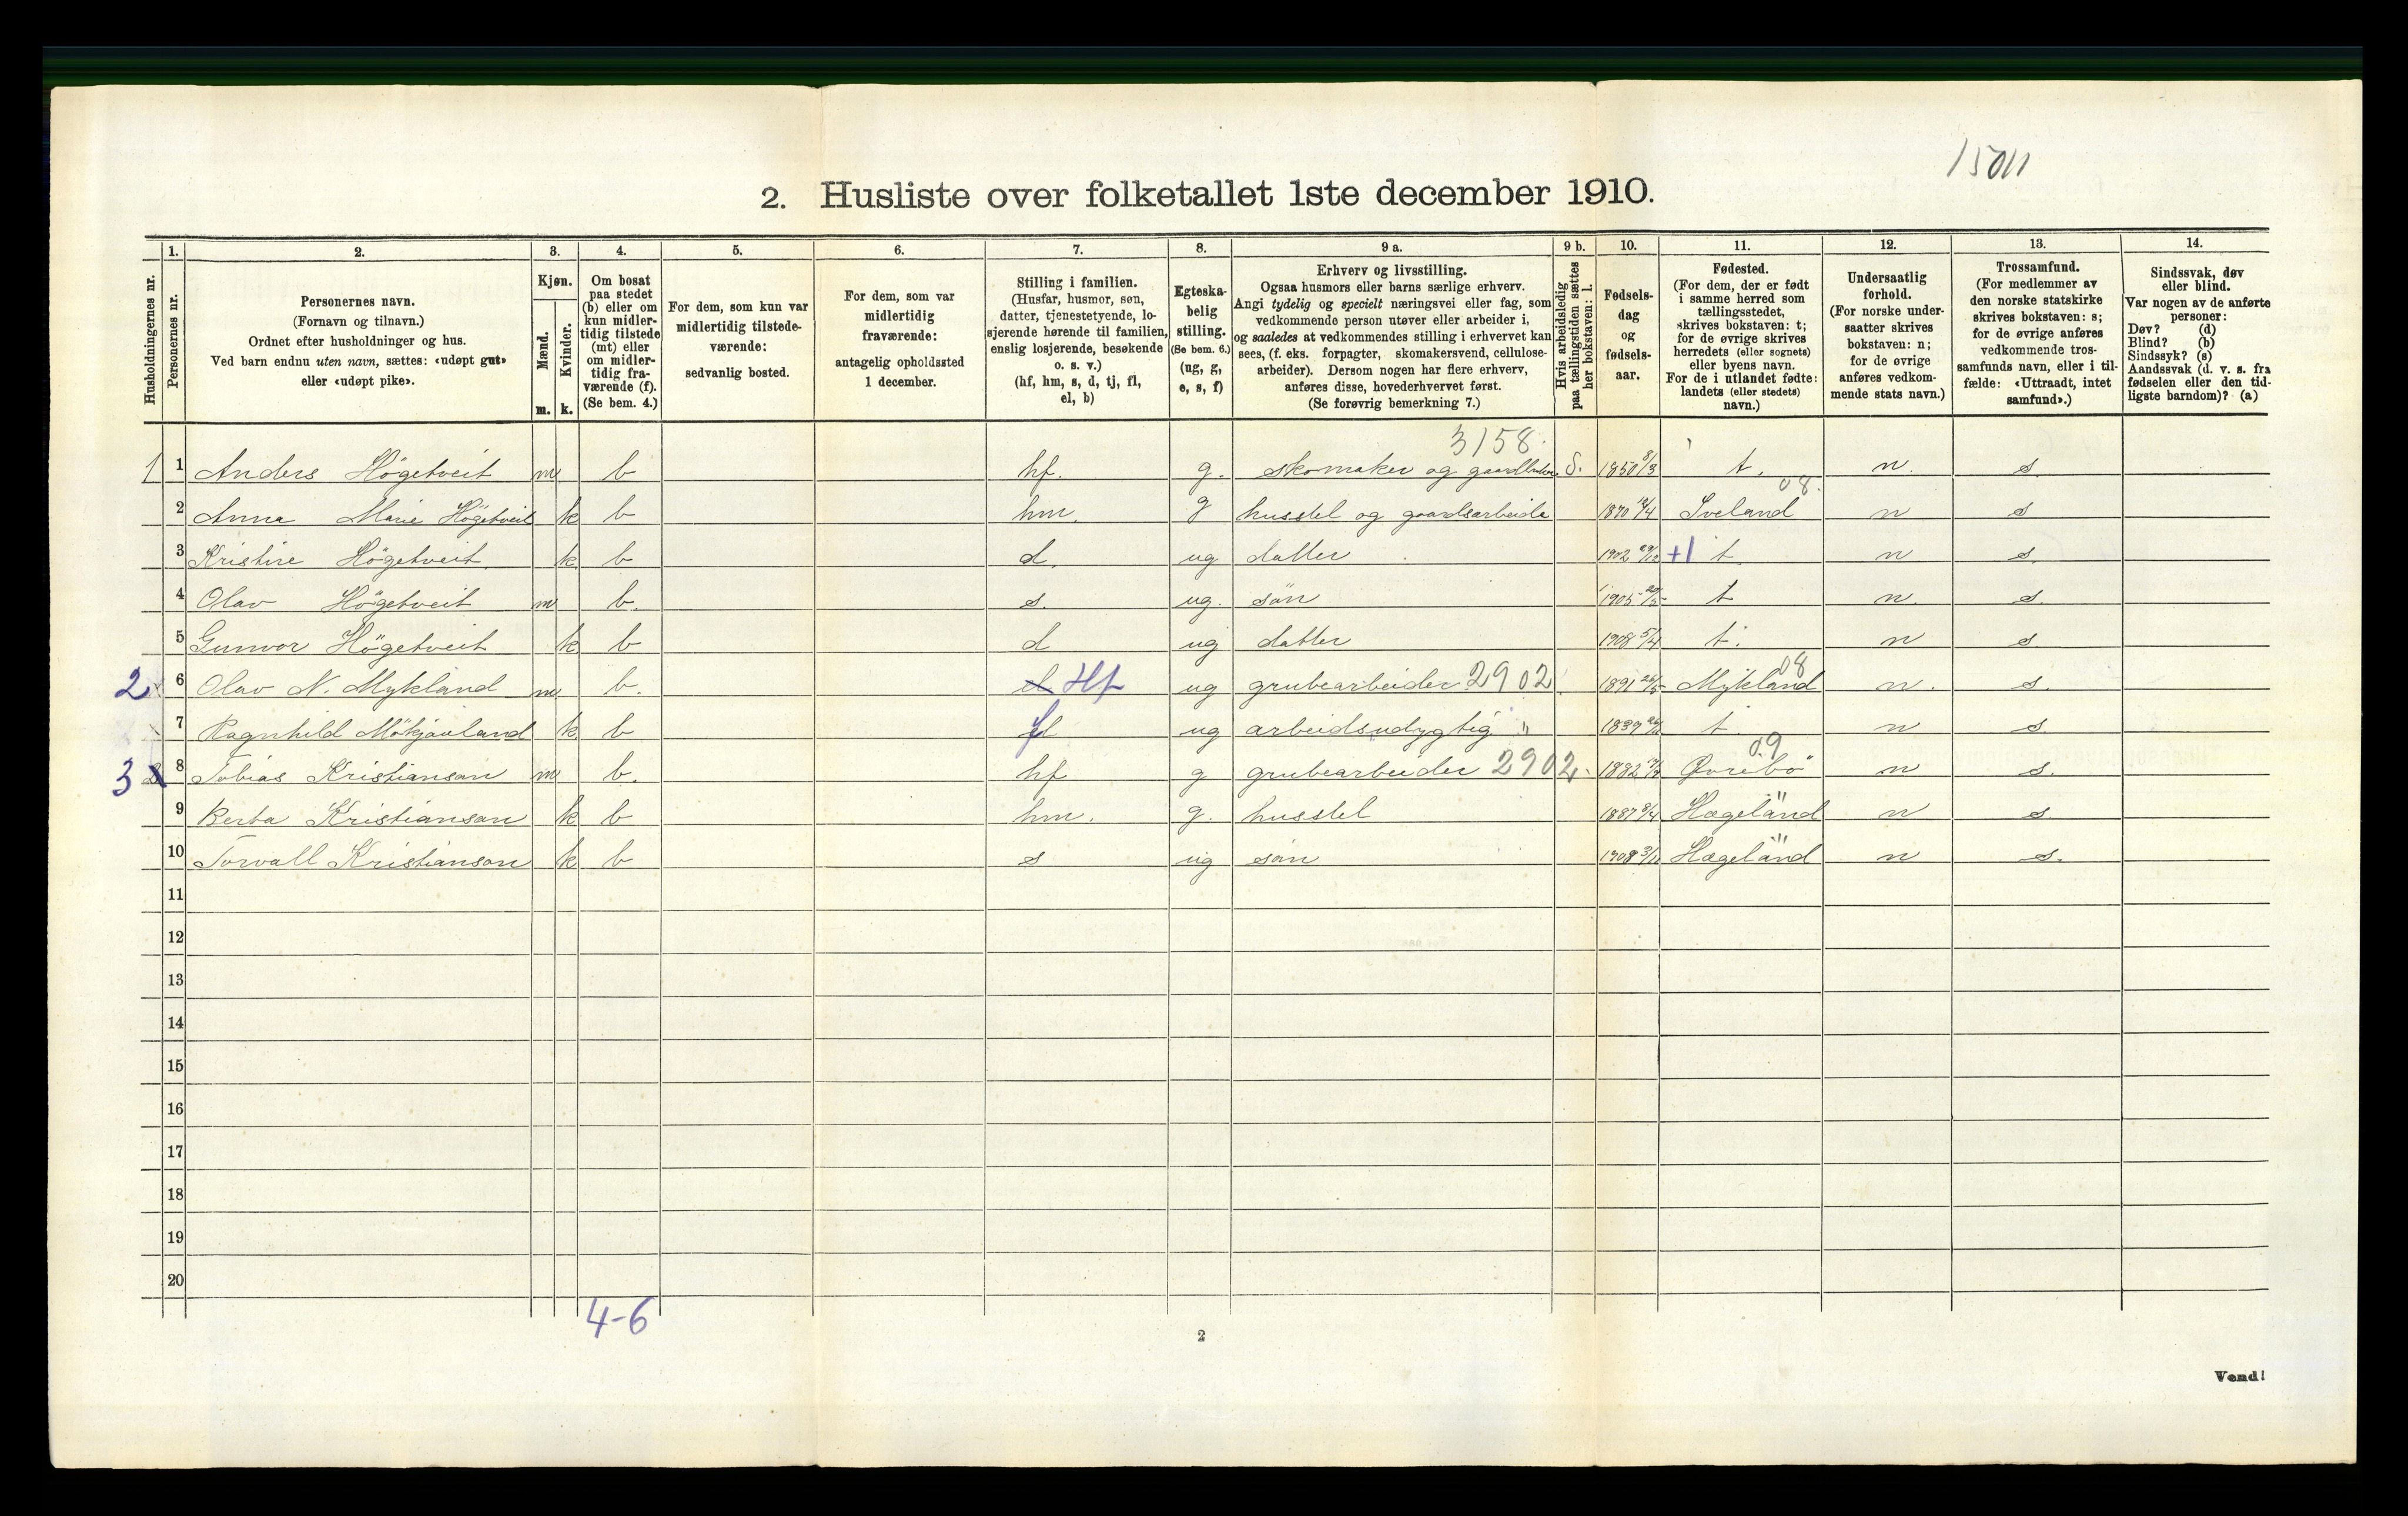 15011
2. Husliste over folketallet 1ste december 1910.
Husholdningernes nr.
1. Personernes nr.
2. Personernes navn.
(Fornavn og tilnavn.)
Ordnet efter husholdninger og hus.
Ved barn endnu uten navn, sættes: «udøpt gut»
eller «udøpt pike».
3. Kjøn.
Mænd. Kvinder.
m. k.
4. Om bosat
paa stedet
(b) eller om
kun midler-
tidig tilstede
(mt) eller
om midler-
tidig fra-
værende (f).
(Se bem. 4.)
5. For dem, som kun var
midlertidig tilstede-
værende:
sedvanlig bosted.
6. For dem, som var
midlertidig
fraværende:
antagelig opholdssted
1 december.
7. Stilling i familien.
(Husfar, husmor, søn,
datter, tjenestetyende, lo-
sjerende hørende til familien,
enslig losjerende, besøkende
o. s. v.)
(hf, hm, s, d, tj, fl,
el, b)
8. Egteska-
belig
stilling.
(Se bem. 6.)
(ug, g,
e, s, f)
9 a. Erhverv og livsstilling.
Ogsaa husmors eller barns særlige erhverv.
Angi tydelig og specielt næringsvei eller fag, som
vedkommende person utøver eller arbeider i,
og saaledes at vedkommendes stilling i erhvervet kan
sees, (f. eks. forpagter, skomakersvend, cellulose-
arbeider). Dersom nogen har flere erhverv,
anføres disse, hovederhvervet først.
(Se forøvrig bemerkning 7.)
9 b. Hvis arbeidsledig
paa tællingstiden sættes
her bokstaven: l.
10. Fødsels-
dag
og
fødsels-
aar.
11. Fødested.
(For dem, der er født
i samme herred som
tællingsstedet,
skrives bokstaven: t;
for de øvrige skrives
herredets (eller sognets)
eller byens navn.
For de i utlandet fødte:
landets (eller stedets)
navn.)
12. Undersaatlig
forhold.
(For norske under-
saatter skrives
bokstaven: n;
for de øvrige
anføres vedkom-
mende stats navn.)
13. Trossamfund.
(For medlemmer av
den norske statskirke
skrives bokstaven: s;
for de øvrige anføres
vedkommende tros-
samfunds navn, eller i til-
fælde: «Uttraadt, intet
samfund».)
14. Sindssvak, døv
eller blind.
Var nogen av de anførte
personer:
Døv? (d)
Blind? (b)
Sindssyk? (s)
Aandssvak (d. v. s. fra
fødselen eller den tid-
ligste barndom)? (a)
3158.
1 1 Anders Högetveit m b hf. g. skomaker og gaardbruker S. 1850 8/3 t. n. s
08.
2 Anna Marie Högetveit k b hm. g husstel og gaardsarbeide 1870 Iveland n s
3 Kristine Högetveit k b d. ug datter 1902 29/12 +1 t. n s.
4 Olav Högetveit m b. s. ug. sön 1905 t n. s.
5 Gunvor Högetveit k b d ug datter 1908 5/4 t. n s.
08
2 6 Olav N. Mykland m b. el Hf ug grubearbeider 2902 1891 Mykland n. s.
7 Ragnhild Mökjåvland k b fl ug arbeidsudygtig " 1839 t. n s.
09
3 8 Tobias Kristianson m b. hf g grubearbeider 2902. 1882 Øvrebö n s.
9 Berta Kristianson k b hm. g. husstel 1887 8/4 Hægeland " n s
10 Torvall Kristianson k b s ug sön 1908 3/11 Hægeland " n s.
11
12
13
14
15
16
17
18
19
20
4-6
2
Vend!